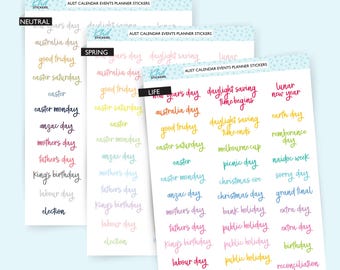 STICKERS
AUST CALENDAR EVENTS PLANNER STICKERS
NEUTRAL
australia day
good friday
easter saturday
easter
easter monday
anzac day
mothers day
fathers day
King's birthday
labour day
election
STICKERS
AUST CALENDAR EVENTS PLANNER STICKERS
SPRING
australia day
good friday
easter
labour day
STICKERS
AUST CALENDAR EVENTS PLANNER STICKERS
LIFE
new years day
daylight saving time begins
lunar new year
australia day
daylight saving time ends
earth day
good friday
easter saturday
melbourne cup
remembrance day
easter
picnic day
naidoc week
easter monday
christmas eve
sorry day
anzac day
christmas day
grand final
mothers day
bank holiday
extra day
fathers day
public holiday
extra day
King's birthday
public holiday
birthday
labour day
public holiday
reconciliation